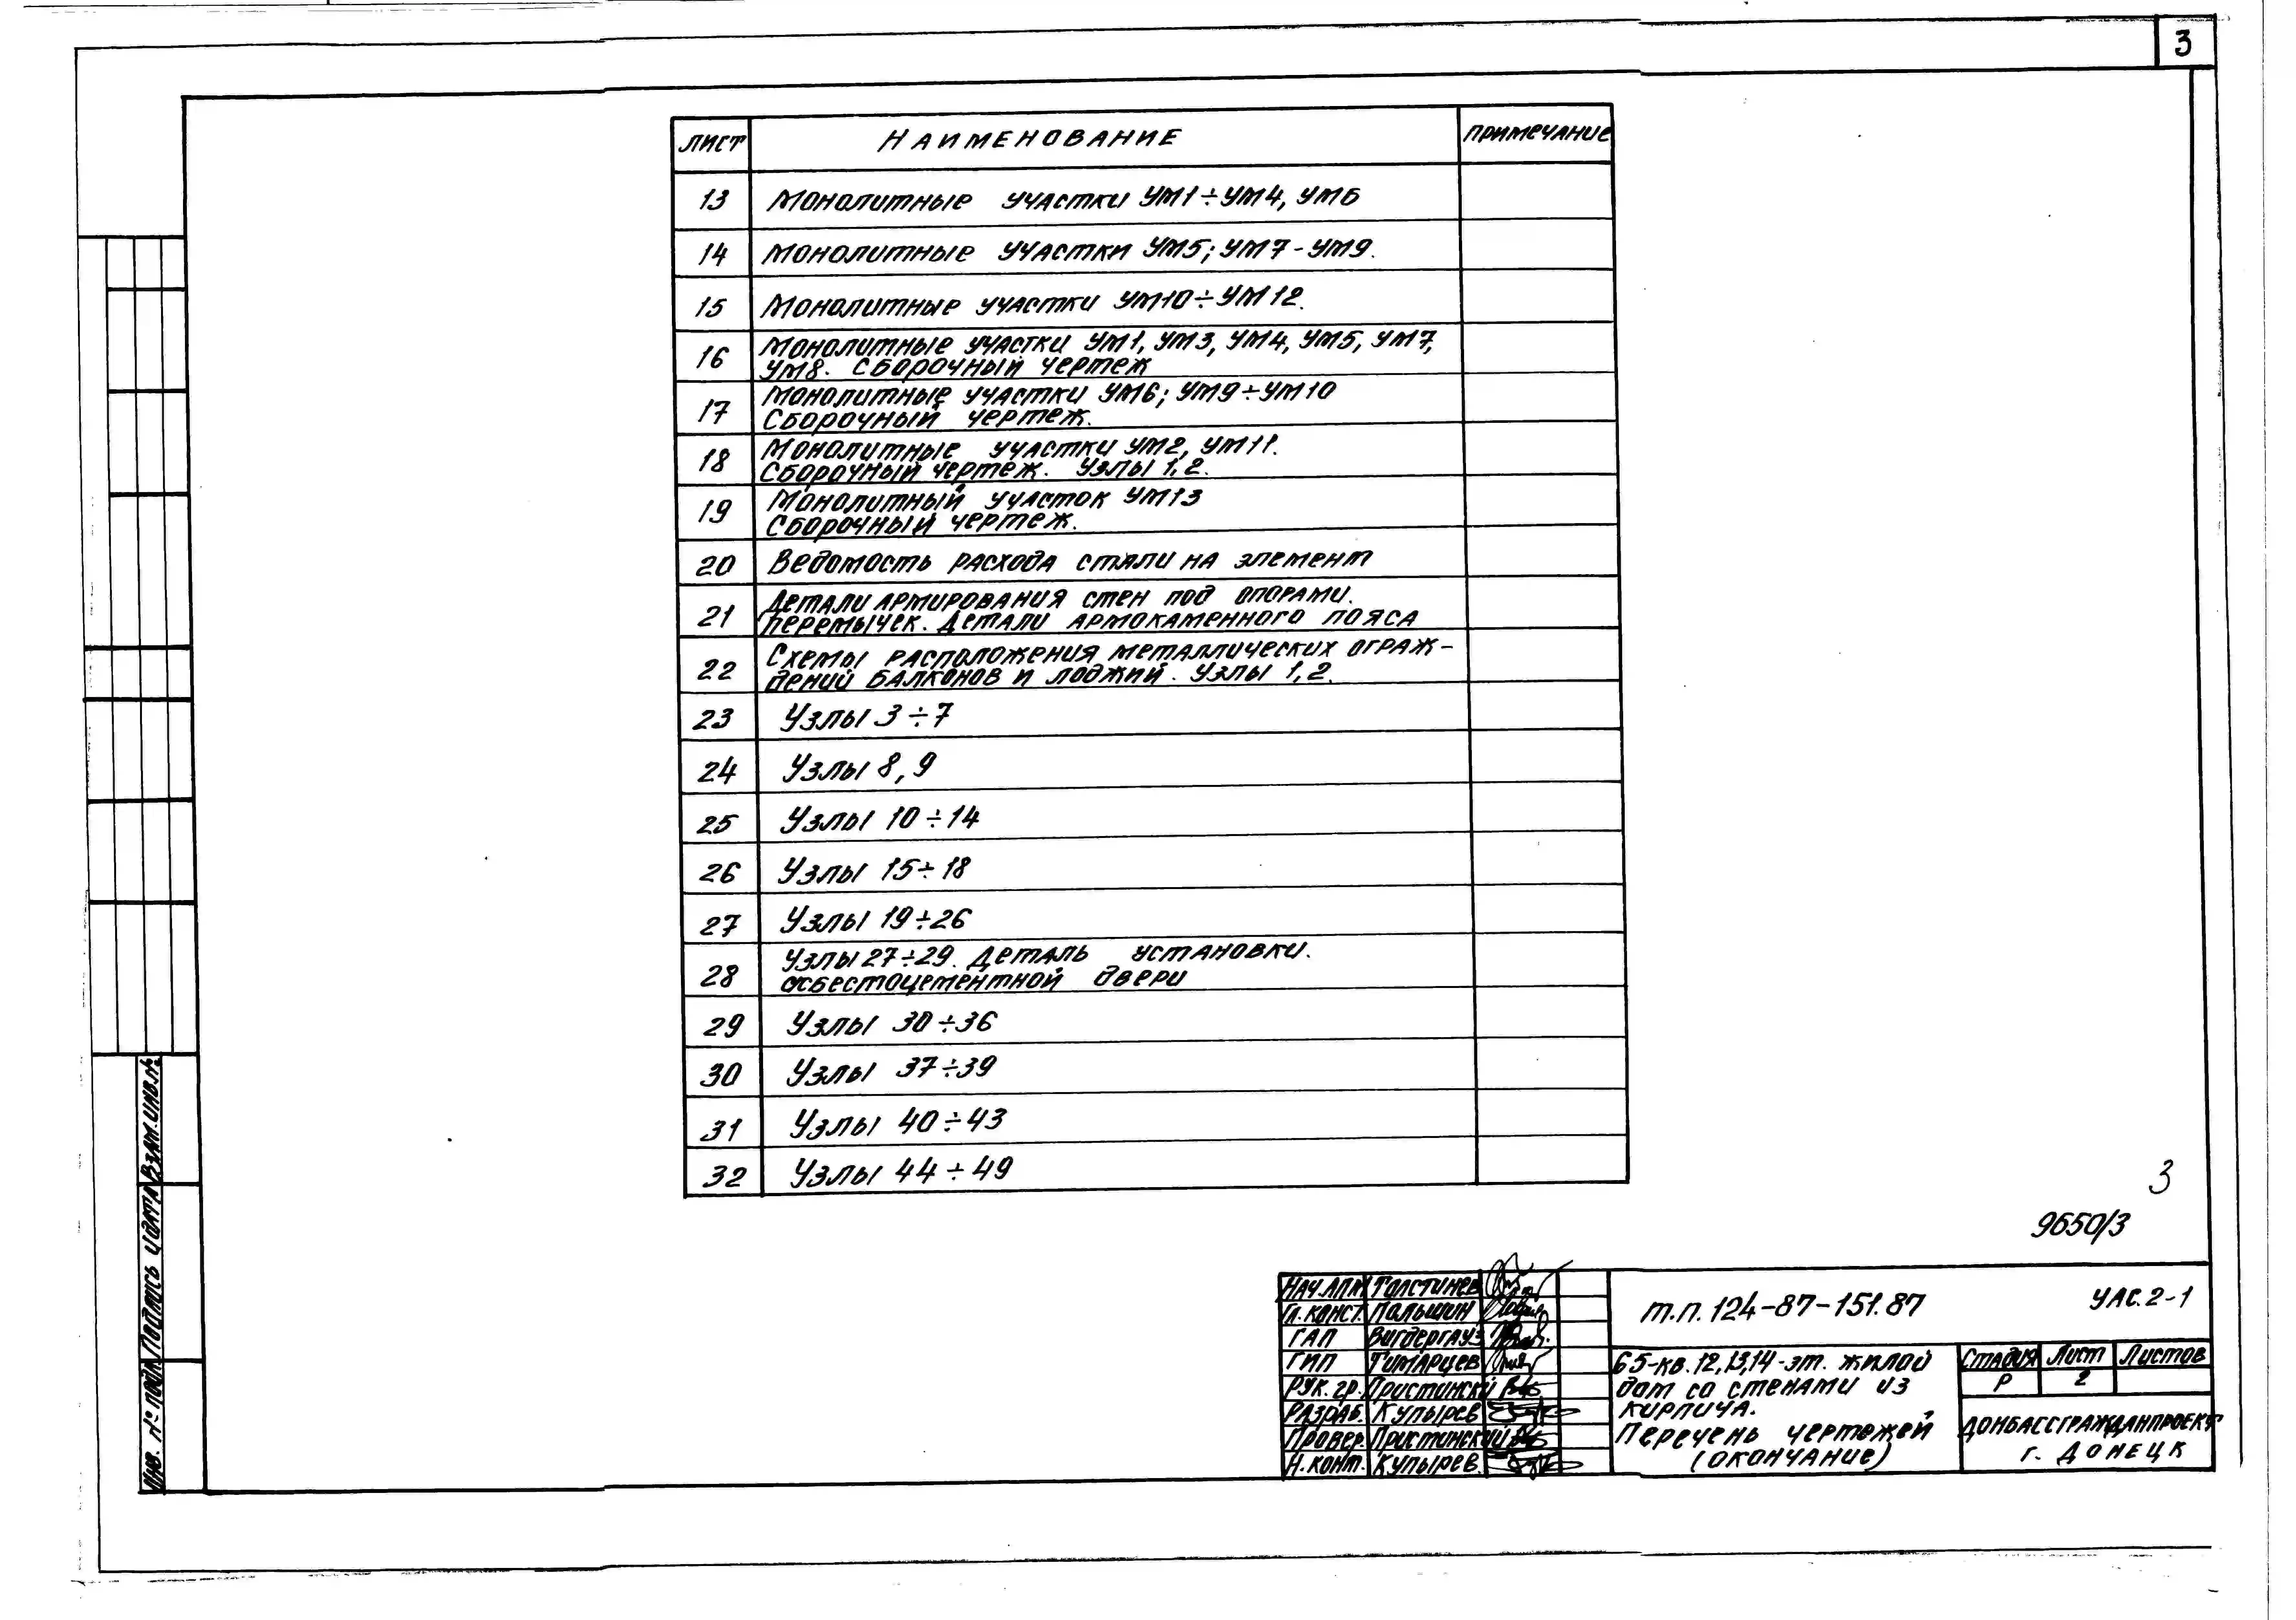 3
Лист Наименование Примечание
13 Монолитные участки Ум1÷Ум4, Ум6
14 Монолитные участки Ум5; Ум7-Ум9.
15 Монолитные участки Ум10÷Ум12.
16 Монолитные участки Ум1, Ум3, Ум4, Ум5, Ум7,
Ум8. Сборочный чертеж
17 Монолитные участки Ум6; Ум9÷Ум10
Сборочный чертеж.
18 Монолитные участки Ум2, Ум11.
Сборочный чертеж. Узлы 1,2.
19 Монолитный участок Ум13
Сборочный чертеж.
20 Ведомость расхода стали на элемент
21 Детали армирования стен под опорами.
перемычек. Детали армокаменного пояса
22 Схемы расположения металлических ограж-
дений балконов и лоджий. Узлы 1,2.
23 Узлы 3÷7
24 Узлы 8,9
25 Узлы 10÷14
26 Узлы 15÷18
27 Узлы 19÷26
28 Узлы 27÷29. Деталь установки.
асбестоцементной двери
29 Узлы 30÷36
30 Узлы 37÷39
31 Узлы 40÷43
32 Узлы 44÷49
3
9650/3
Инв. № подл. Подпись и дата Взам. инв. №
Нач. АПМ Толстинев
Гл. конст. Пальшин
ГАП Вигдергауз
ГИП Тимарцев
Рук. гр. Пристинский
Разраб. Купырев
Провер. Пристинский
Н. конт. Купырев.
т.п. 124-87-151.87 УАС.2-1
65-кв. 12,13,14-эт. жилой
дом со стенами из
кирпича.
Перечень чертежей
(окончание)
Стадия Лист Листов
Р 2
Донбассгражданпроект
г. Донецк